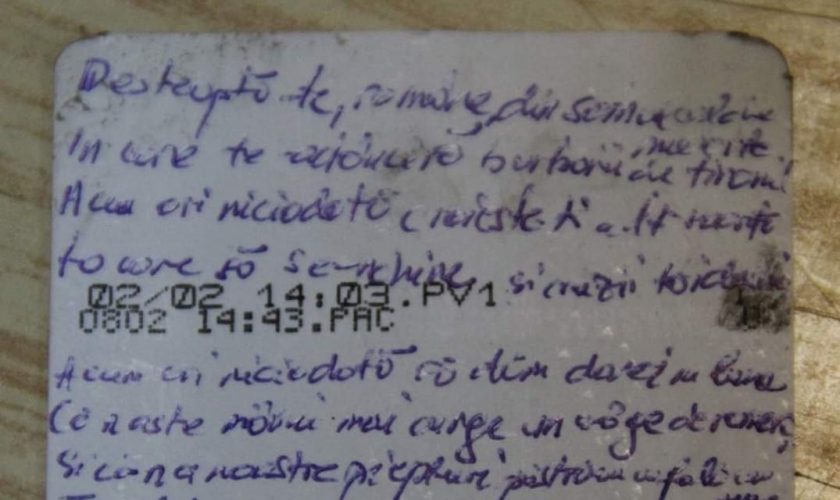 Desteaptă-te, române, din somnul
de moarte
In care te adânciră barbarii de tirani
Acum ori niciodată croieste-ti altă soartă
La care să se-nchine si cruzii
02/02 14:03.PV1
0802 14:43.PAC
Acum ori niciodată să dăm dovezi in lume
Că n aste mâni mai curge un sânge de roman
Si că n a noastre piepturi păstrăm cu fală un